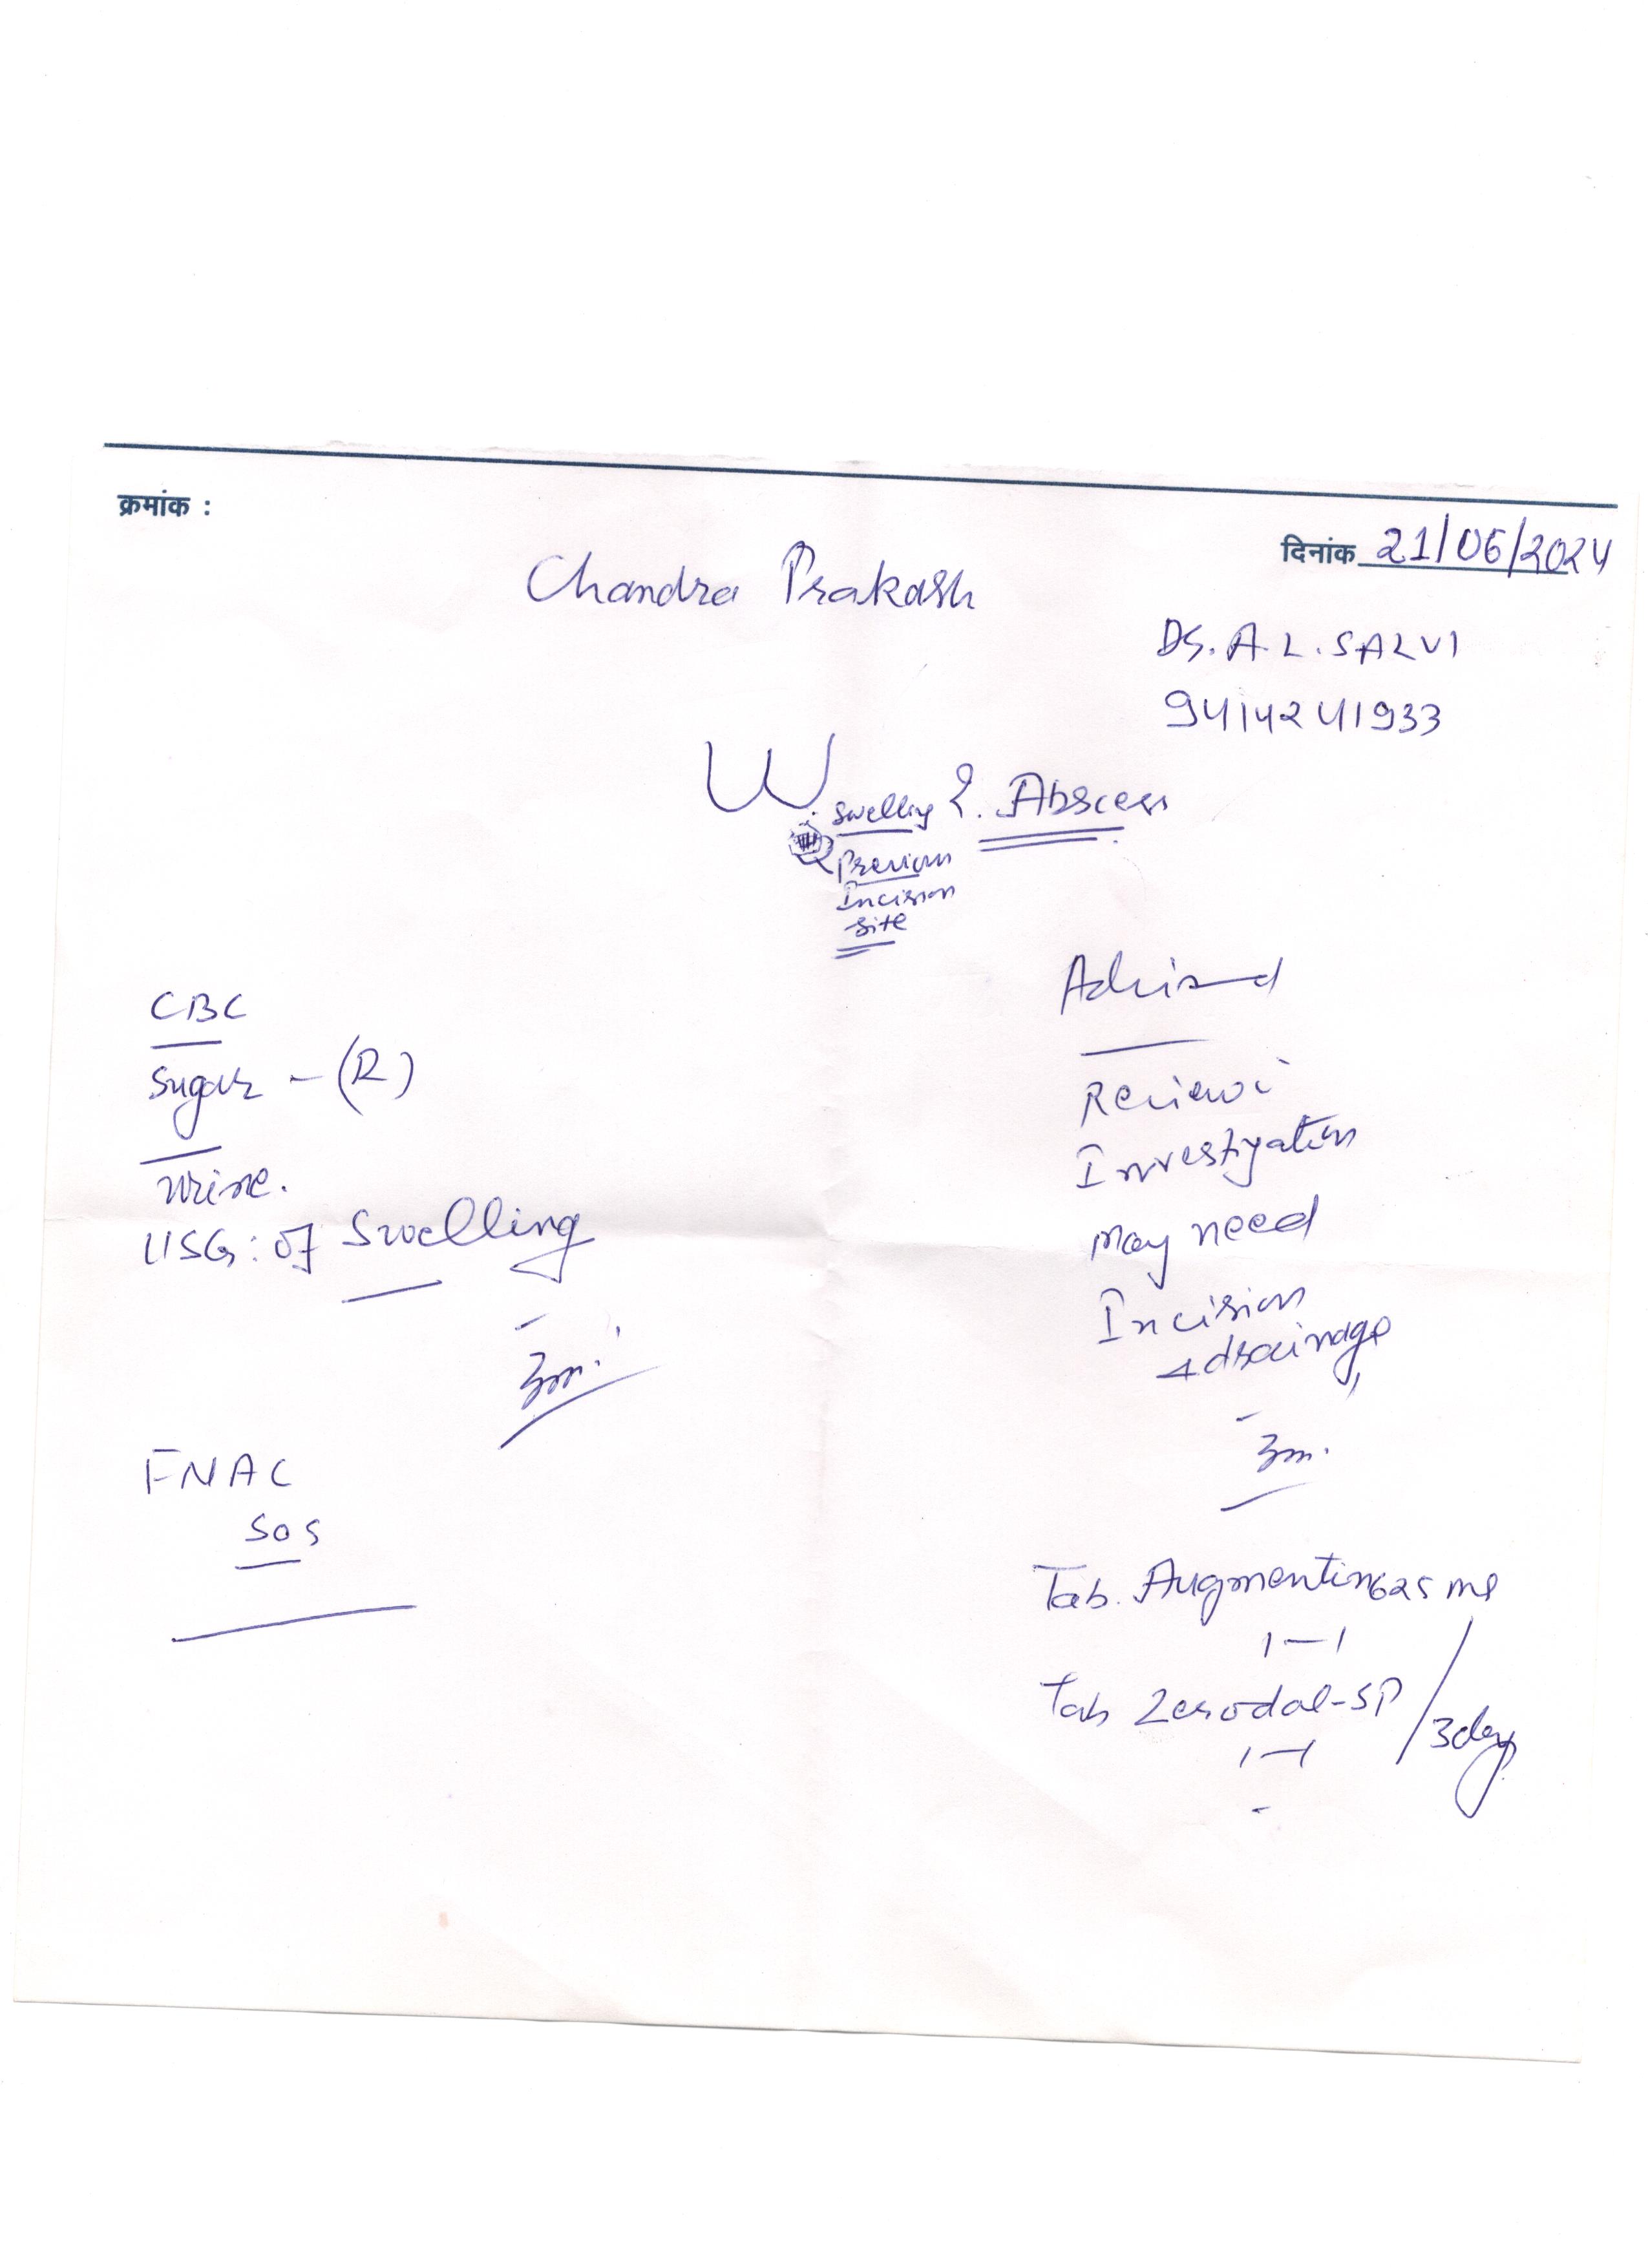 क्रमांक :
दिनांक 21/06/2024
Chandra Prakash
Dr. A. L. SALVI
9414241933
Swelling ?. Abscess
Previous
Incision
site
CBC
Sugar - (R)
Urine.
USG: of Swelling
FNAC
SOS
Advised
Review
Investigation
may need
Incision
+ drainage
Tab. Augmentin 625 mg
1-1
Tab Zerodol-SP / 3day
1-1